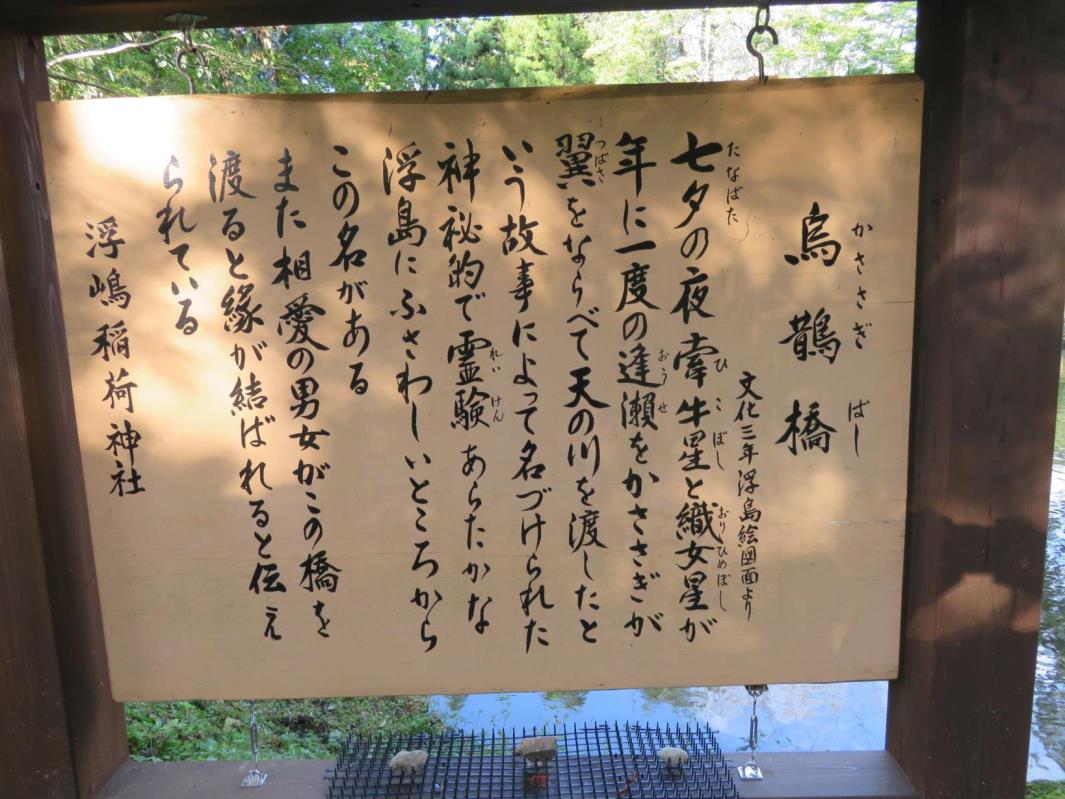 烏鵲橋
かささぎばし
文化三年浮島絵図面より
七夕の夜牽牛星と織女星が
たなばた ひこぼし おりひめぼし
年に一度の逢瀬をかささぎが
おうせ
翼をならべて天の川を渡したと
つばさ
いう故事によって名づけられた
神秘的で霊験あらたかな
れいけん
浮島にふさわしいところから
この名がある
また相愛の男女がこの橋を
渡ると縁が結ばれると伝え
られている
浮嶋稲荷神社